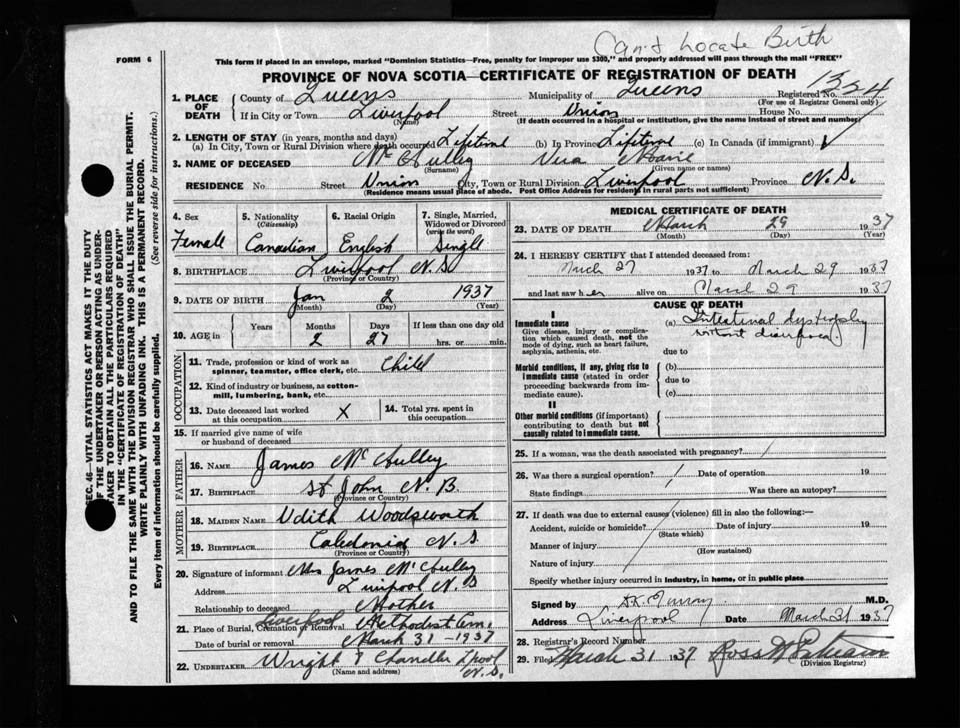 Can't Locate Birth
FORM 6
This form if placed in an envelope, marked "Dominion Statistics—Free, penalty for improper use $300," and properly addressed will pass through the mail "FREE"
PROVINCE OF NOVA SCOTIA—CERTIFICATE OF REGISTRATION OF DEATH
1324
1. PLACE OF DEATH County of Queens Municipality of Queens Registered No.
(For use of Registrar General only)
If in City or Town Liverpool Street Union House No.
(Name) (If death occurred in a hospital or institution, give the name instead of street and number)
2. LENGTH OF STAY (in years, months and days)
(a) In City, Town or Rural Division where death occurred Lifetime (b) In Province Lifetime (c) In Canada (if immigrant)
3. NAME OF DECEASED Vera Marie
(Surname) (Given name or names)
RESIDENCE No. Street Union City, Town or Rural Division Liverpool Province N.S.
(Residence means usual place of abode. Post Office Address for residents in rural parts not sufficient)
4. Sex 5. Nationality 6. Racial Origin 7. Single, Married, Widowed or Divorced
(Citizenship) (write the word)
Female Canadian English Single
8. BIRTHPLACE Liverpool N.S.
(Province or Country)
9. DATE OF BIRTH Jan 2 1937
(Month) (Day) (Year)
10. AGE in Years Months Days If less than one day old
2 27 hrs. or min.
OCCUPATION
11. Trade, profession or kind of work as spinner, teamster, office clerk, etc. Child
12. Kind of industry or business, as cotton-mill, lumbering, bank, etc.
13. Date deceased last worked at this occupation X 14. Total yrs. spent in this occupation
15. If married give name of wife or husband of deceased
FATHER
16. NAME James
17. BIRTHPLACE St John N.B.
(Province or Country)
MOTHER
18. MAIDEN NAME Udith Woodsworth
19. BIRTHPLACE Caledonia N.S.
(Province or Country)
20. Signature of informant Mrs James
Address Liverpool N.S
Relationship to deceased Mother
21. Place of Burial, Cremation or Removal Liverpool Methodist Cem.
Date of burial or removal March 31 - 1937
22. UNDERTAKER Wright & Chandler L'pool N.S.
(Name and address)
MEDICAL CERTIFICATE OF DEATH
23. DATE OF DEATH March 29 1937
(Month) (Day) (Year)
24. I HEREBY CERTIFY that I attended deceased from:
March 27 1937 to March 29 1937
and last saw her alive on March 29 1937
CAUSE OF DEATH
I
Immediate cause (a) Intestinal dystrophy
Give disease, injury or complication which caused death, not the mode of dying, such as heart failure, asphyxia, asthenia, etc.
without diarrhoea
due to
Morbid conditions, if any, giving rise to immediate cause (stated in order proceeding backwards from immediate cause)
(b)
due to
(c)
II
Other morbid conditions (if important) contributing to death but not causally related to immediate cause.
25. If a woman, was the death associated with pregnancy?
26. Was there a surgical operation? Date of operation 19
State findings Was there an autopsy?
27. If death was due to external causes (violence) fill in also the following:—
Accident, suicide or homicide? Date of injury 19
(State which)
Manner of injury
(How sustained)
Nature of injury
Specify whether injury occurred in industry, in home, or in public place
Signed by M.D.
Address Liverpool Date March 31 1937
28. Registrar's Record Number
29. Filed March 31 1937 Ross
(Division Registrar)
SEC. 46—VITAL STATISTICS ACT MAKES IT THE DUTY
OF THE UNDERTAKER OR PERSON ACTING AS UNDER-
TAKER TO OBTAIN ALL THE PARTICULARS REQUIRED
IN THE "CERTIFICATE OF REGISTRATION OF DEATH"
AND TO FILE THE SAME WITH THE DIVISION REGISTRAR WHO SHALL ISSUE THE BURIAL PERMIT.
WRITE PLAINLY WITH UNFADING INK. THIS IS A PERMANENT RECORD.
Every item of information should be carefully supplied. (See reverse side for instructions.)